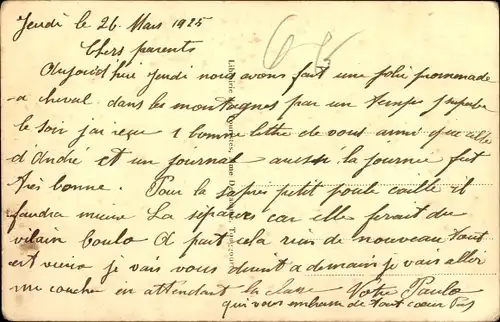 Jeudi le 26 Mars 1925
Chers parents
Aujourd'hui Jeudi nous avons fait une jolie promenade
a cheval dans les montagnes par un temps superbe
le soir j'ai reçu 1 bonne lettre de vous ainsi que celle
d'André et un journal aussi la journée fut
très bonne. Pour la petit poule caille il
faudra mieux la séparer car elle ferait du
vilain boulo A part cela rien de nouveau tout
est vieux je vais vous dire a demain je vais aller
me couché en attendant la classe Votre Paulo
qui vous embrasse de tout cœur
Librairie